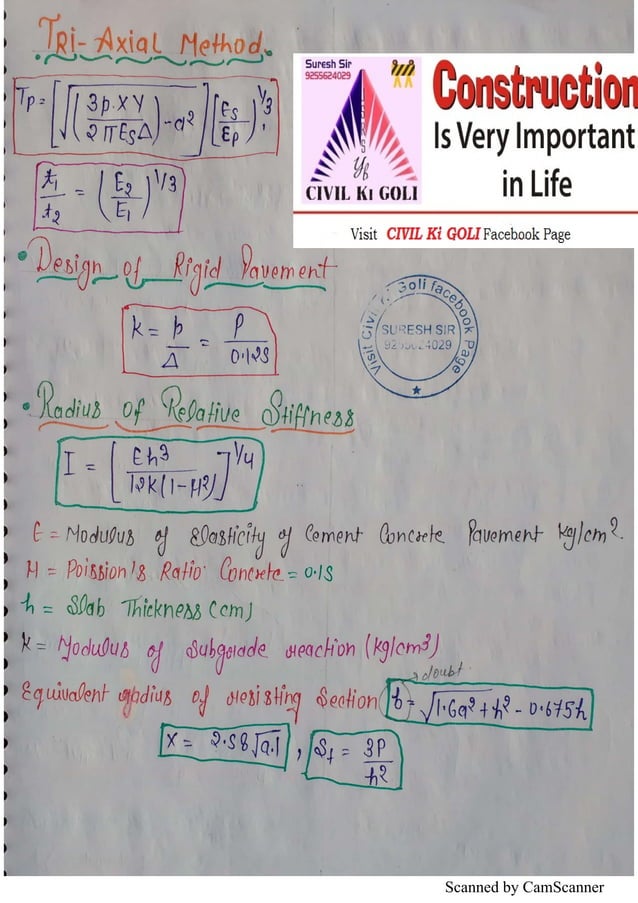 TRI-Axial Method.
Tp = [√((3p.XY / 2πEsΔ) - a²)] [Es / Ep]^1/3
t1 / t2 = (E2 / E1)^1/3
Suresh Sir
9255624029
CIVIL Ki GOLI
Construction
Is Very Important
in Life
Visit CIVIL Ki GOLI Facebook Page
• Design of Rigid Pavement
K = p / Δ = P / 0.125
Visit Civil Ki Goli facebook Page
SURESH SIR
9255624029
• Radius of Relative Stiffness
I = [Eh³ / 12K(1-μ²)]^1/4
E = Modulus of Elasticity of Cement Concrete Pavement kg/cm².
μ = Poission's Ratio Concrete = 0.15
h = Slab Thickness (cm)
K = Modulus of Subgrade reaction (kg/cm³)
doubt
Equivalent radius of resisting Section b = √1.6a²+h² - 0.675h
X = 2.58√a.l , St = 3P / h²
Scanned by CamScanner